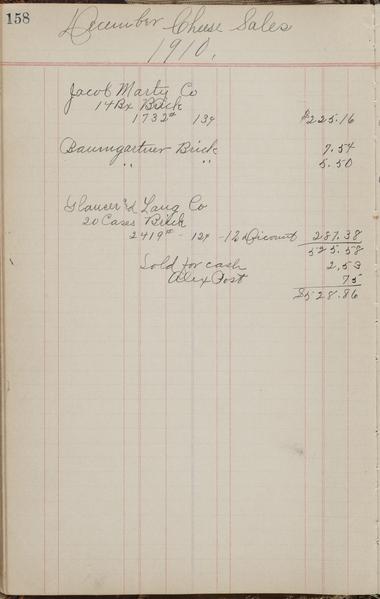 158
December Cheese Sales
1910.
Jacob Marty Co
14 Bx Brick
1732# 13¢ $225.16
Baumgartner Brick 7.54
" " 5.50
Glauser & Lang Co
20 Cases Brick
2419# - 12¢ - 1% Discount 287.38
525.58
Sold for cash 2.53
Alex Post 75
$528.86